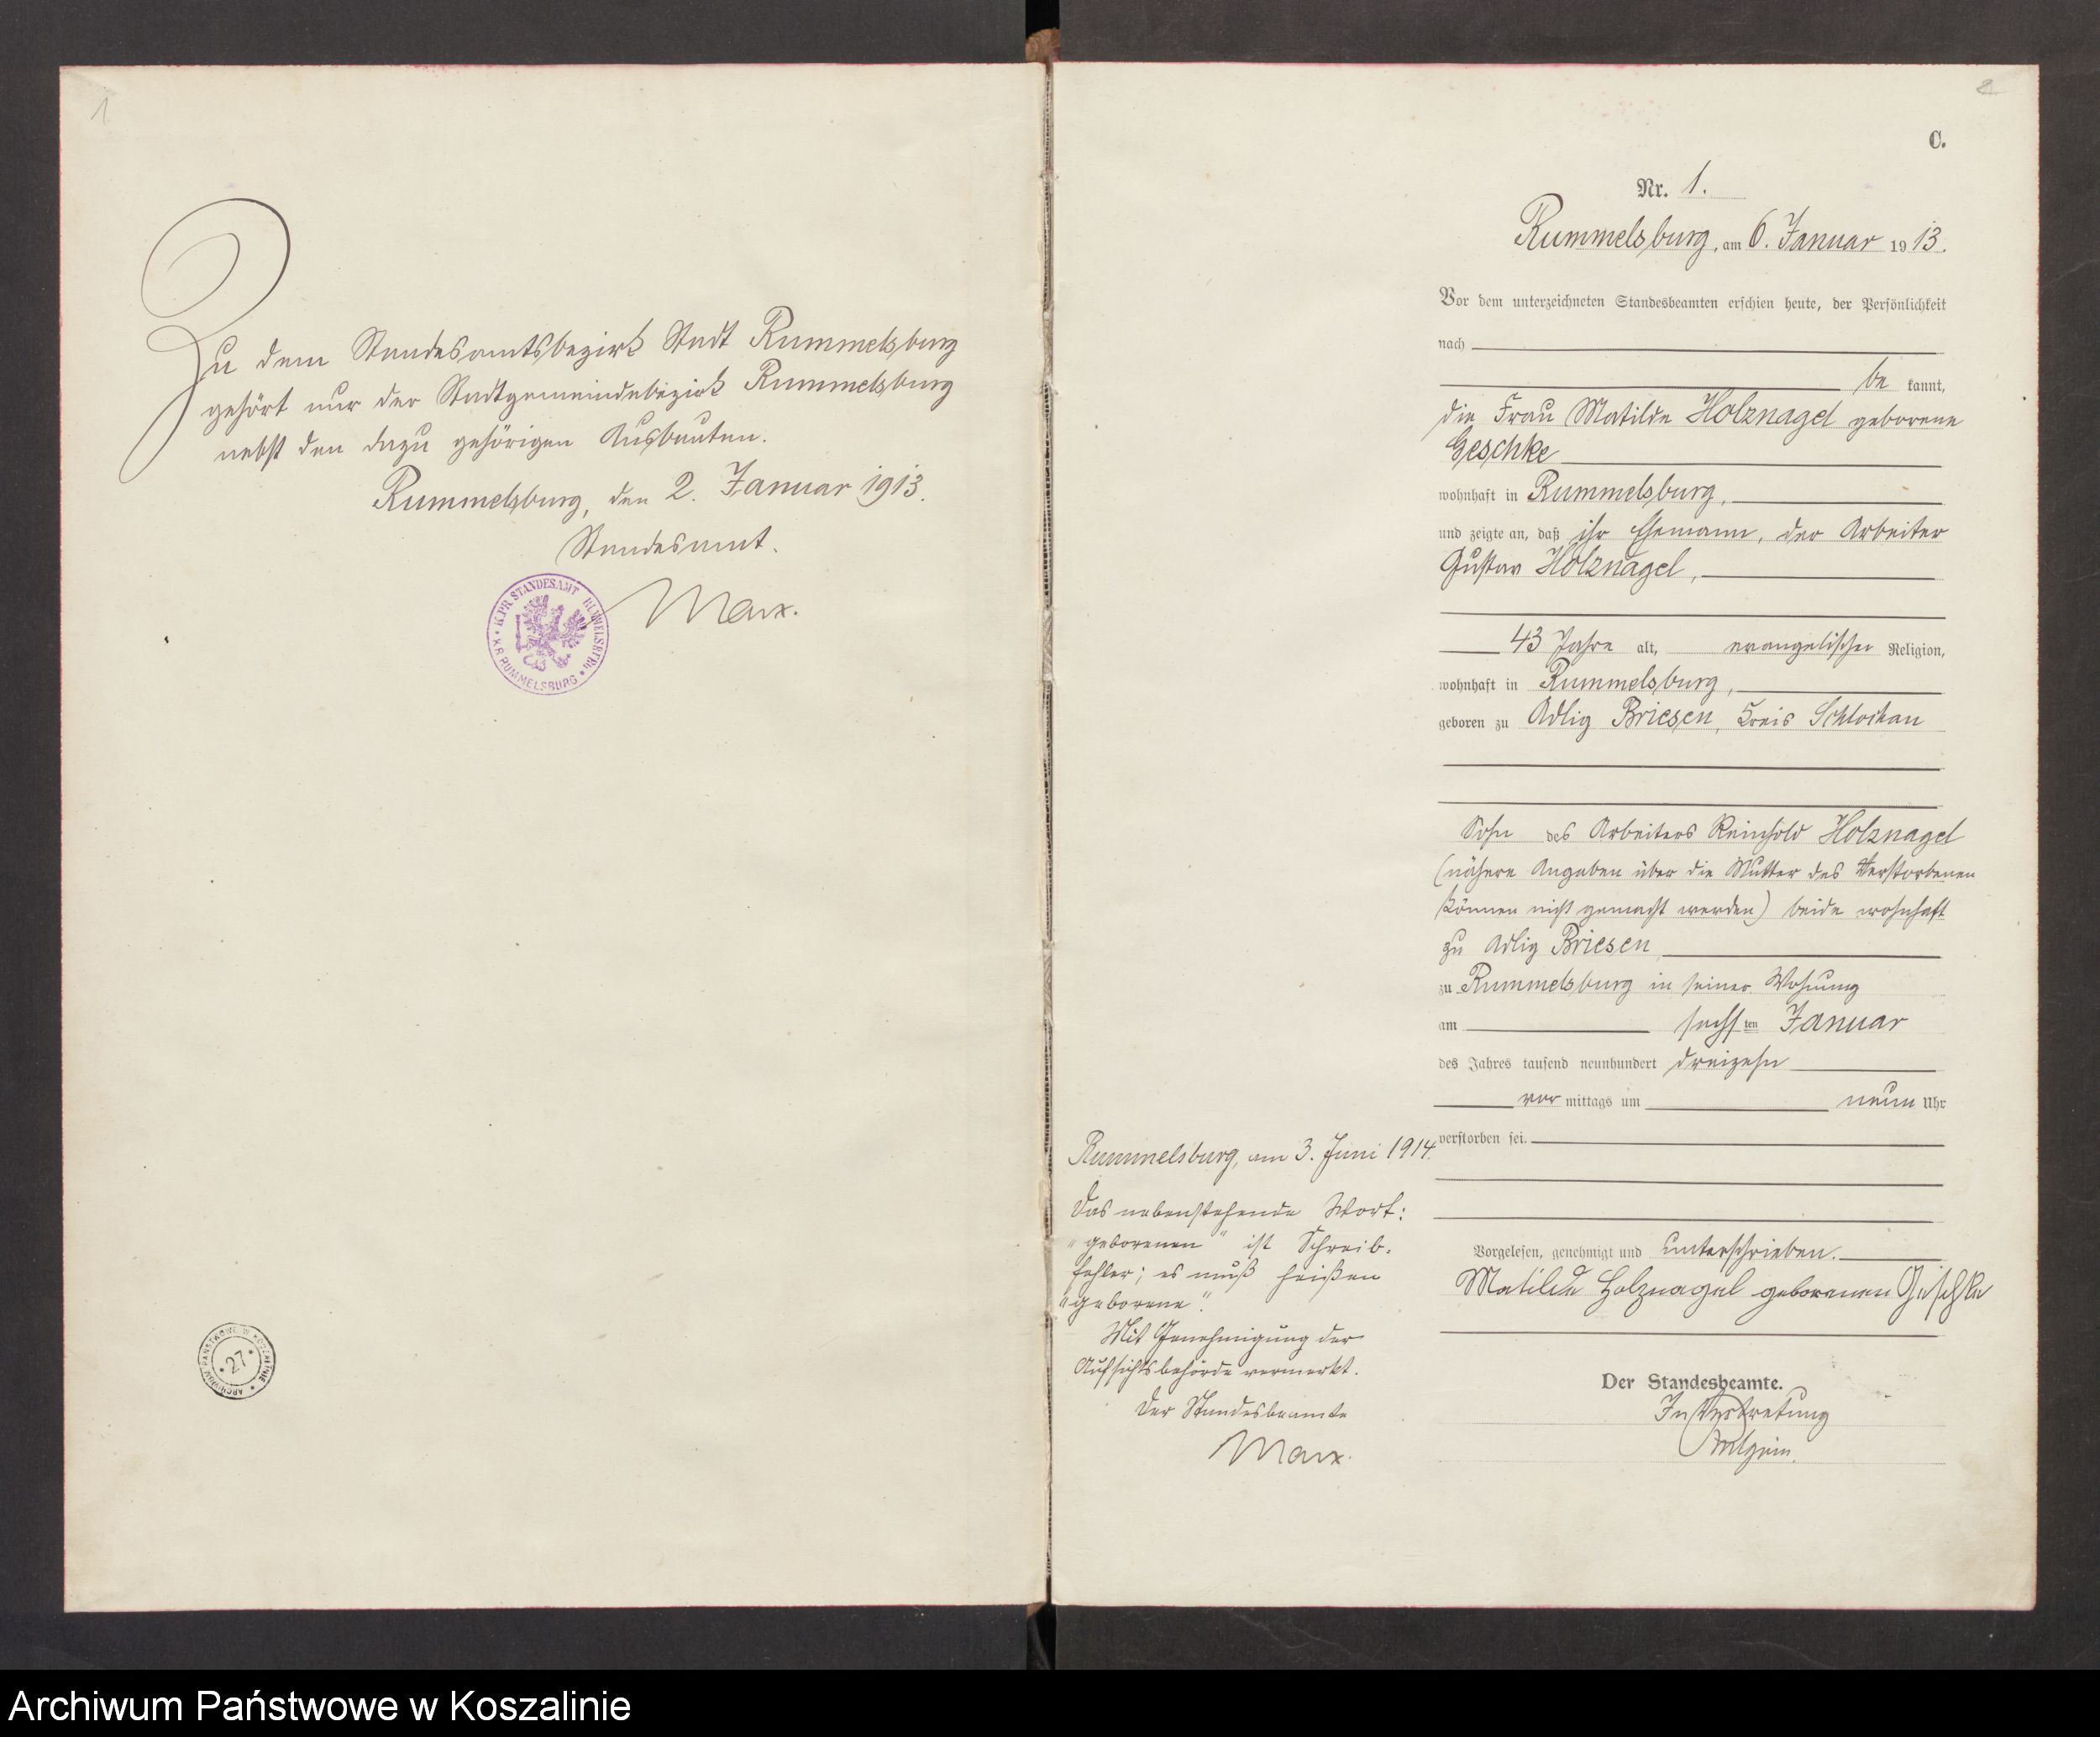 1
Zu dem Standesamtsbezirk Stadt Rummelsburg
gehört nur der Stadtgemeindebezirk Rummelsburg
nebst den dazu gehörigen Ausbauten.
Rummelsburg, den 2. Januar 1913.
Standesamt.
Marx.
K. PR. STANDESAMT RUMMELSBURG
KR. RUMMELSBURG
ARCHIWUM PAŃSTWOWE W KOSZALINIE
27
2
C.
Nr. 1.
Rummelsburg, am 6. Januar 1913.
Vor dem unterzeichneten Standesbeamten erschien heute, der Persönlichkeit
nach
be kannt,
die Frau Matilde Holznagel geborene
Geschke
wohnhaft in Rummelsburg,
und zeigte an, daß ihr Ehemann, der Arbeiter
Gustav Holznagel,
43 Jahre alt, evangelischer Religion,
wohnhaft in Rummelsburg,
geboren zu Adlig Briesen, Kreis Schlochau
Sohn des Arbeiters Reinhold Holznagel
(nähere Angaben über die Mutter des Verstorbenen
können nicht gemacht werden) beide wohnhaft
zu Adlig Briesen
zu Rummelsburg in seiner Wohnung
am sechs ten Januar
des Jahres tausend neunhundert dreizehn
vor mittags um neun Uhr
verstorben sei.
Vorgelesen, genehmigt und unterschrieben.
Matilde Holznagel geborenen Geschke
Der Standesbeamte.
In Vertretung
Rummelsburg, am 3. Juni 1914.
Das nebenstehende Wort:
"geborenen" ist Schreib-
fehler; es muß heißen
"geborene".
Mit Genehmigung der
Aufsichtsbehörde vermerkt.
Der Standesbeamte
Marx.
Archiwum Państwowe w Koszalinie